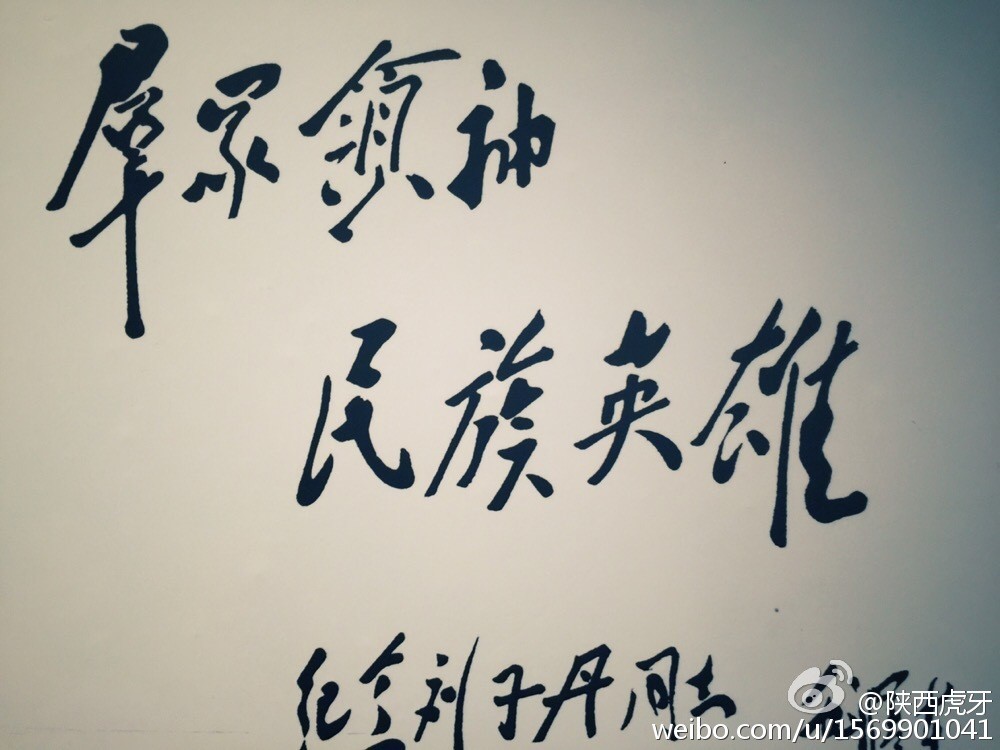 羣眾領袖
民族英雄
纪念刘子丹同志
@陕西虎牙
weibo.com/u/1569901041